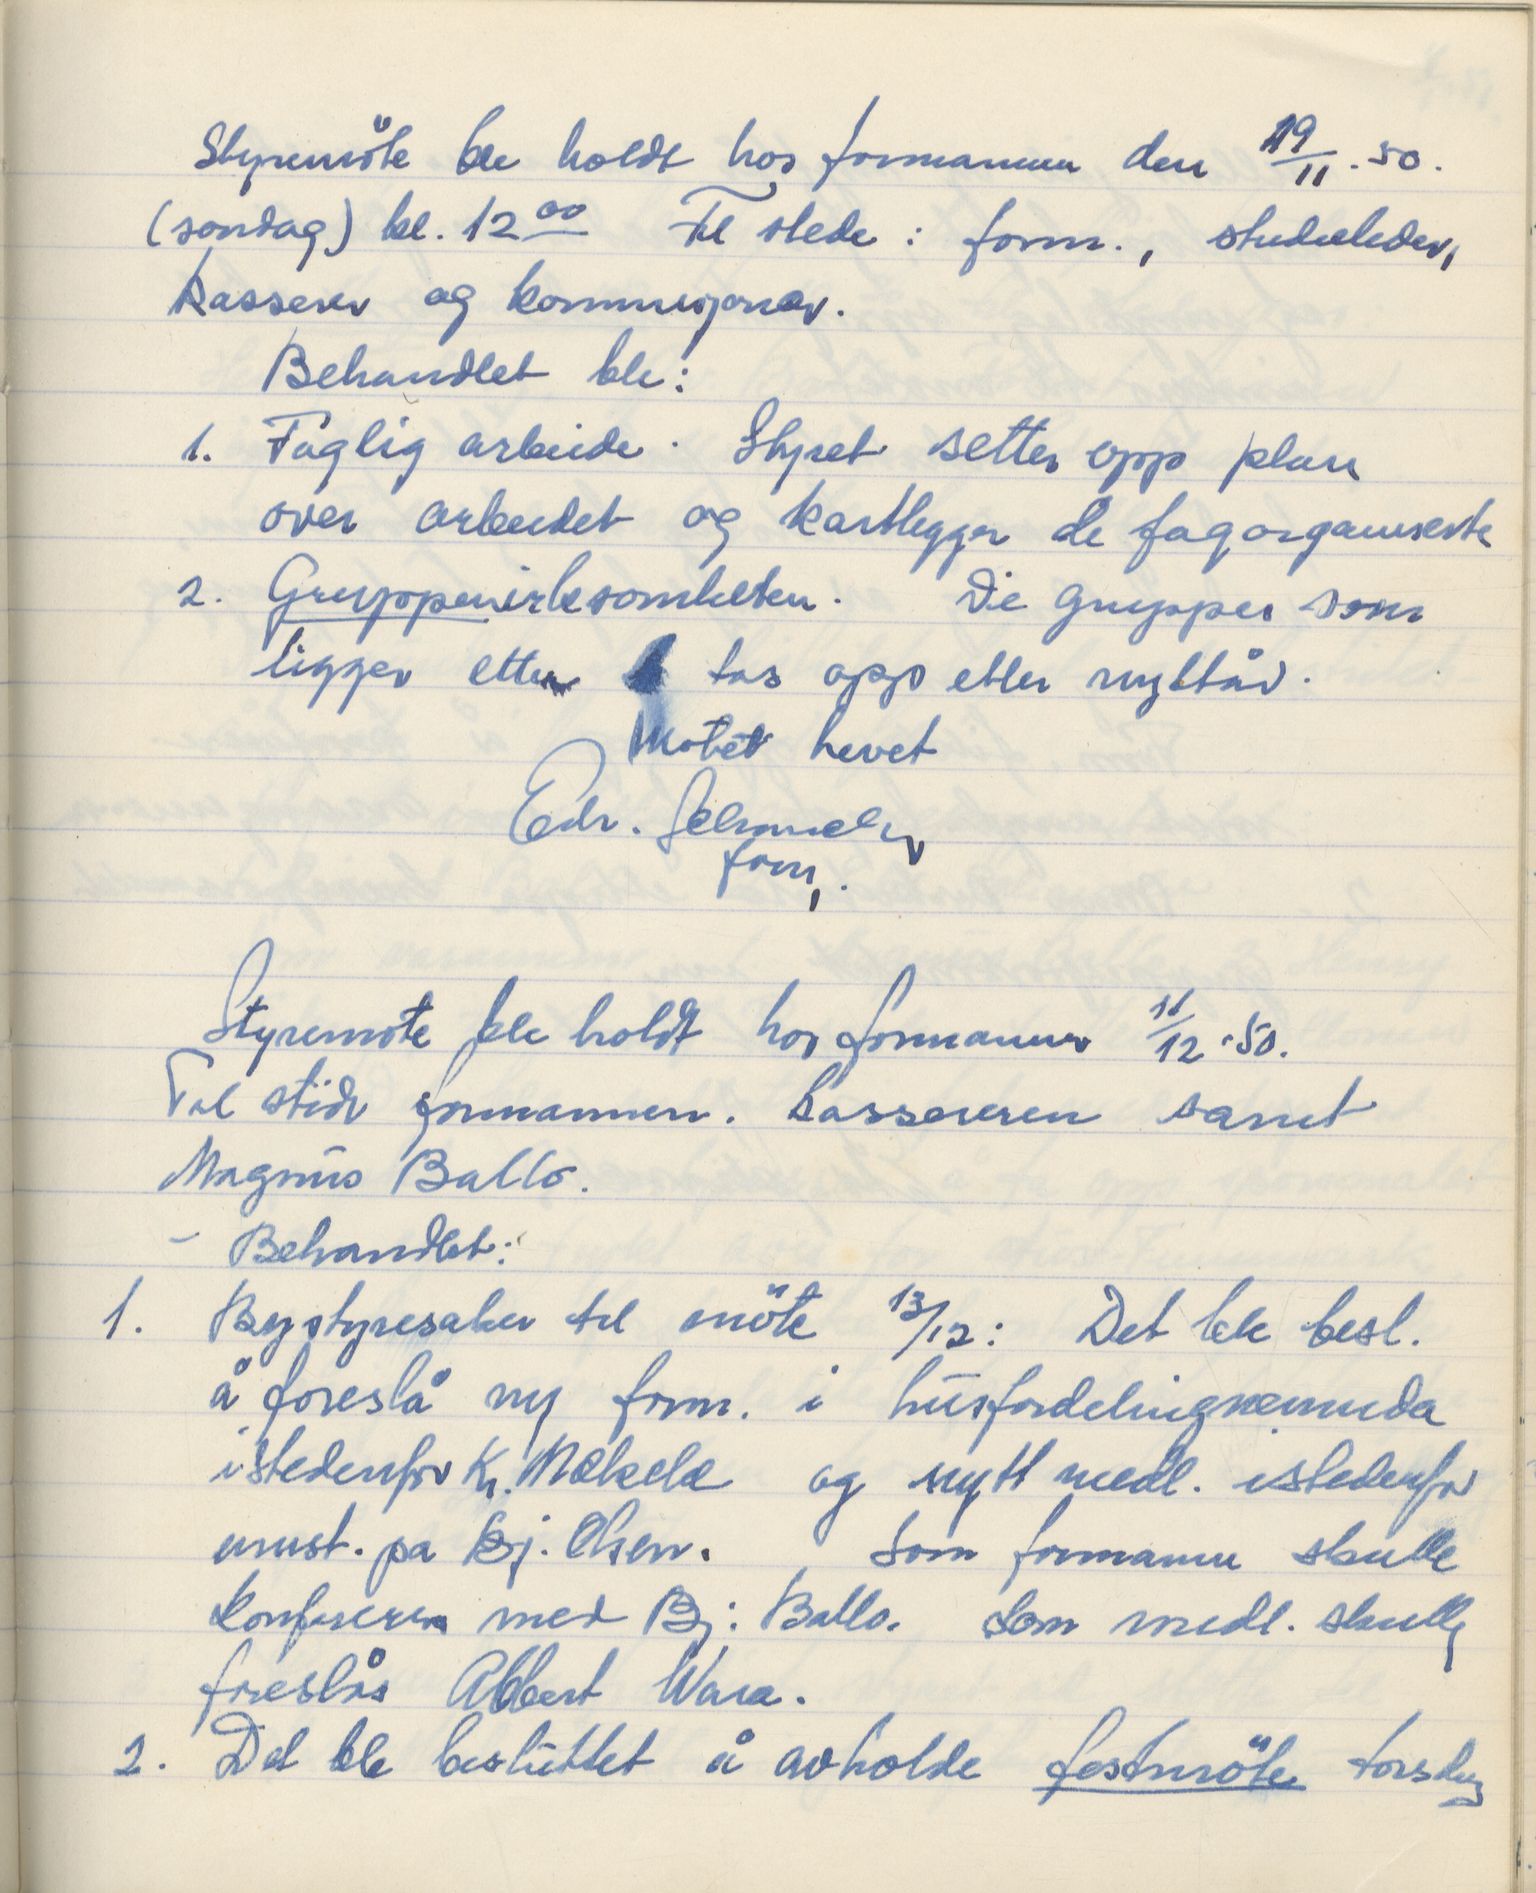 Styremöte ble holdt hos formannen den 19/11.50.
(sondag) kl. 12 00 Til stede : form., studieleder,
kasserer og kommisjonær.
Behandlet ble:
1. Faglig arbeide. Styret setter opp plan
over arbeidet og kartlegger de fagorganiserte
2. Gruppevirksomheten. Die grupper som
ligger etter tas opp etter nyttår.
Motet hevet
Edv.
form.
Styremote ble holdt hos formannen 11/12.50.
Til stede formannen. kassereren samt
Magnus Ballo.
- Behandlet:
1. Bystyresaker til möte 13/12: Det ble besl.
å foreslå ny form. i husfordelingnemnda
istedenfor Kr. Mækelæ og nytt medl. istedenfor
Bj. Olsen. Som formann skulle
konferere med Bj: Ballo. Som medl. skulle
foreslås Albert Wara.
2. Det ble besluttet å avholde festmöte torsdag